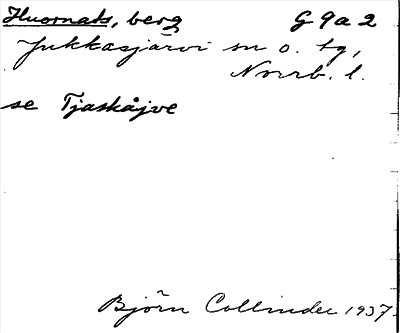 Huornats, berg G 9a 2
Jukkasjärvi sn o. tg,
Norrb. l.
se Tjaskåjve
Björn Collinder 1937.